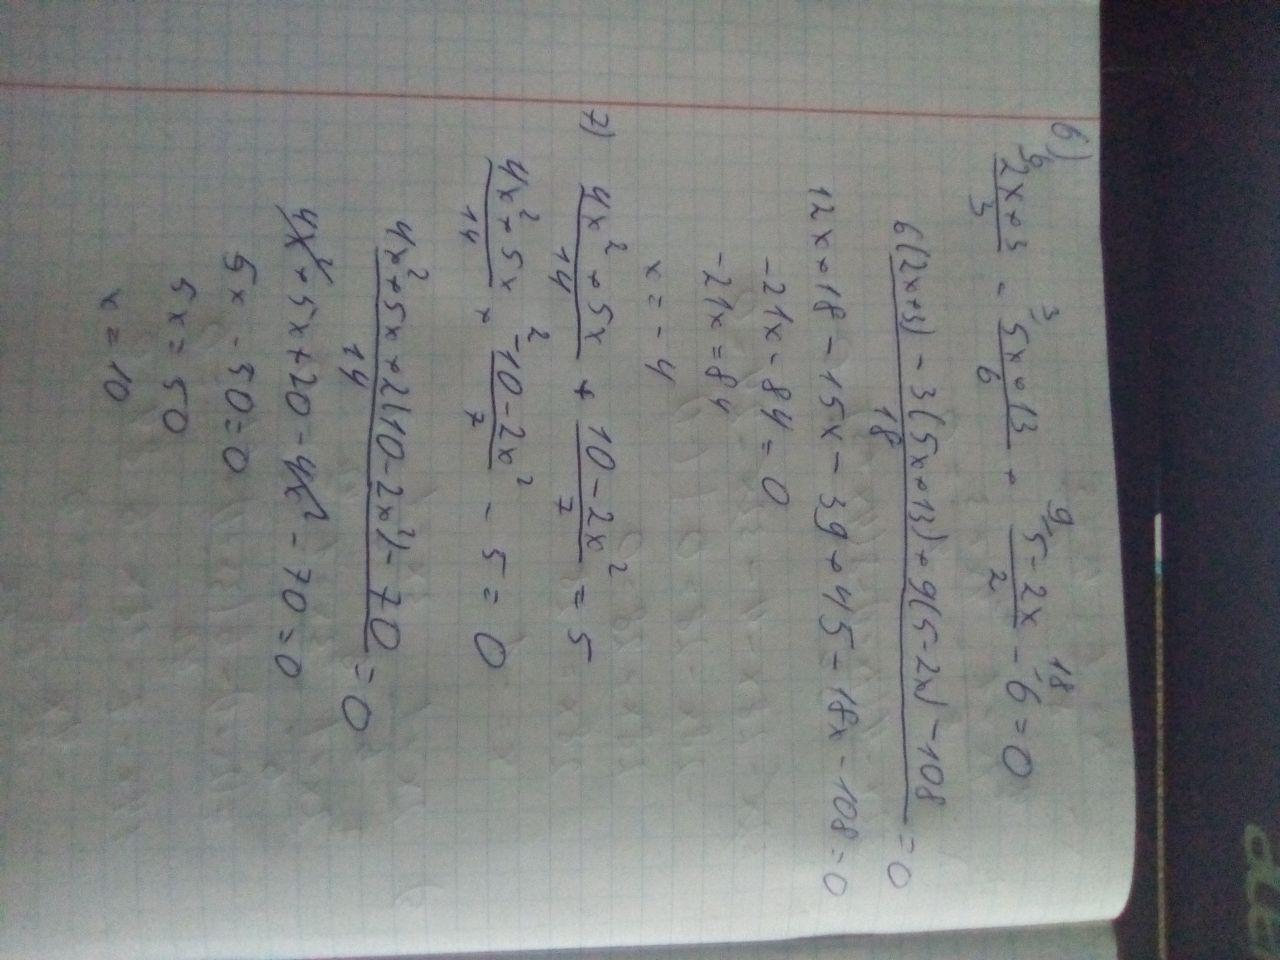 6)
6 3 9 18
(2x+3)/3 - (5x+13)/6 + (5-2x)/2 - 6 = 0
(6(2x+3) - 3(5x+13) + 9(5-2x) - 108)/18 = 0
12x+18 - 15x - 39 + 45 - 18x - 108 = 0
-21x - 84 = 0
-21x = 84
x = -4
7) (4x²+5x)/14 + (10-2x²)/7 = 5
2
(4x²+5x)/14 + (10-2x²)/7 - 5 = 0
(4x²+5x+2(10-2x²) - 70)/14 = 0
4x²+5x+20-4x²-70=0
5x - 50=0
5x = 50
x = 10